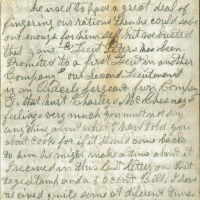 he used to have a great deal of
fingering our rations then he could sell
out enough for himself but we busted
that game. Lieut Peters has been
promoted to a first Lieut in another
Company our Second Lieutenant
is an Orderly Sergeant from Company
I. that hurt Charley McChesneys
feelings very much you must not say
anything about what I have told you
about Cook for if it should come back
to him he might make a time about it
I received in this last letter one
postage stamp and a 5 cent bill, I have
received quite some at diferent times